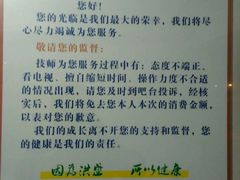 您好！
您的光临是我们最大的荣幸，我们将尽
心尽力竭诚为您服务。
敬请您的监督：
技师为您服务过程中有：态度不端正、
看电视、擅自缩短时间、操作力度不合适
的情况出现，请您及时到吧台投诉，经核
实后，我们将免去您本人本次的消费金额，
以表对您的歉意。
我们的成长离不开您的支持和监督，您
的健康是我们的责任。
因为洪盛 所以健康